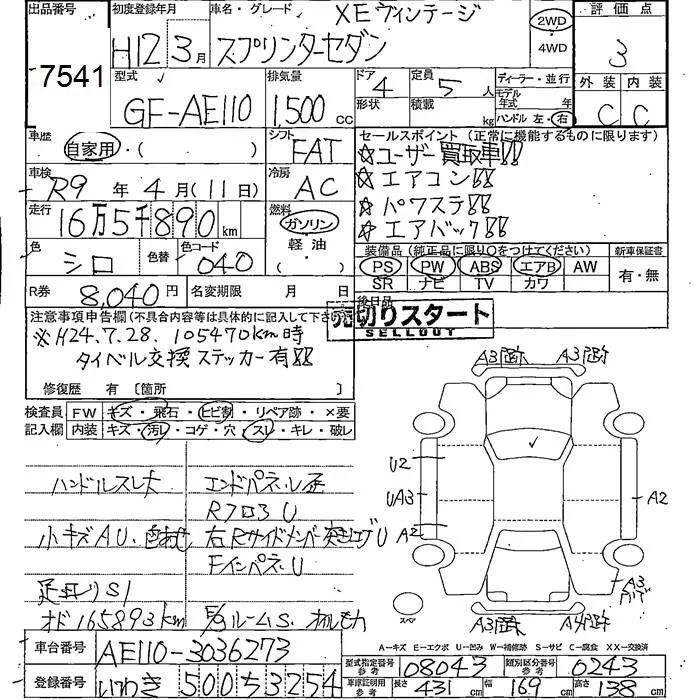 出品番号 7541
初度登録年月 H12年3月
車名・グレード XEヴィンテージ
スプリンターセダン
2WD・4WD
評価点 3
外装 C 内装 C
型式 GF-AE110
排気量 1,500cc
ドア 4 定員 5人
形状 積載 kg
ディーラー・並行
モデル年式 年
ハンドル 左・右
車歴 自家用・( )
シフト FAT
セールスポイント(正常に機能するものに限ります)
☆ユーザー買取車!!
☆エアコン!!
☆パワステ!!
☆エアバック!!
車検 R9年4月(11日)
冷房 AC
走行 16万5千890km
燃料 ガソリン・軽油・( )
色 シロ 色替 色コード 040
装備品(純正品に限り○をつけてください) 新車保証書
PS PW ABS エアB AW
SR ナビ TV カワ
有・無
R券 8,040円 名変期限 月 日
後日品
売切りスタート
SELLOUT
注意事項申告欄(不具合内容等は具体的に記入して下さい)
※H24.7.28. 105470km時
タイベル交換ステッカー有!!
修復歴 有〔箇所 〕
検査員記入欄
FW キズ・飛石・ヒビ割・リペア跡・×要
内装 キズ・汚レ・コゲ・穴・スレ・キレ・破レ
ハンドルスレ大 エンドパネU
Rフロア U
小キズAU・ 右Rサイドメンバー U
FインパネU
S1
オド165893km ルームS.
A3 A3
U2
UA3 A2
A2
A3
スペア
A3 A
A-キズ E-エクボ U-凹み W-補修跡 S-サビ C-腐食 XX-交換済
車台番号 AE110-3036273
型式指定番号 参考 08043 類別区分番号 参考 0243
登録番号 いわき 500 さ 3254
車庫証明用 参考 長さ 431cm 幅 169cm 高さ 138cm